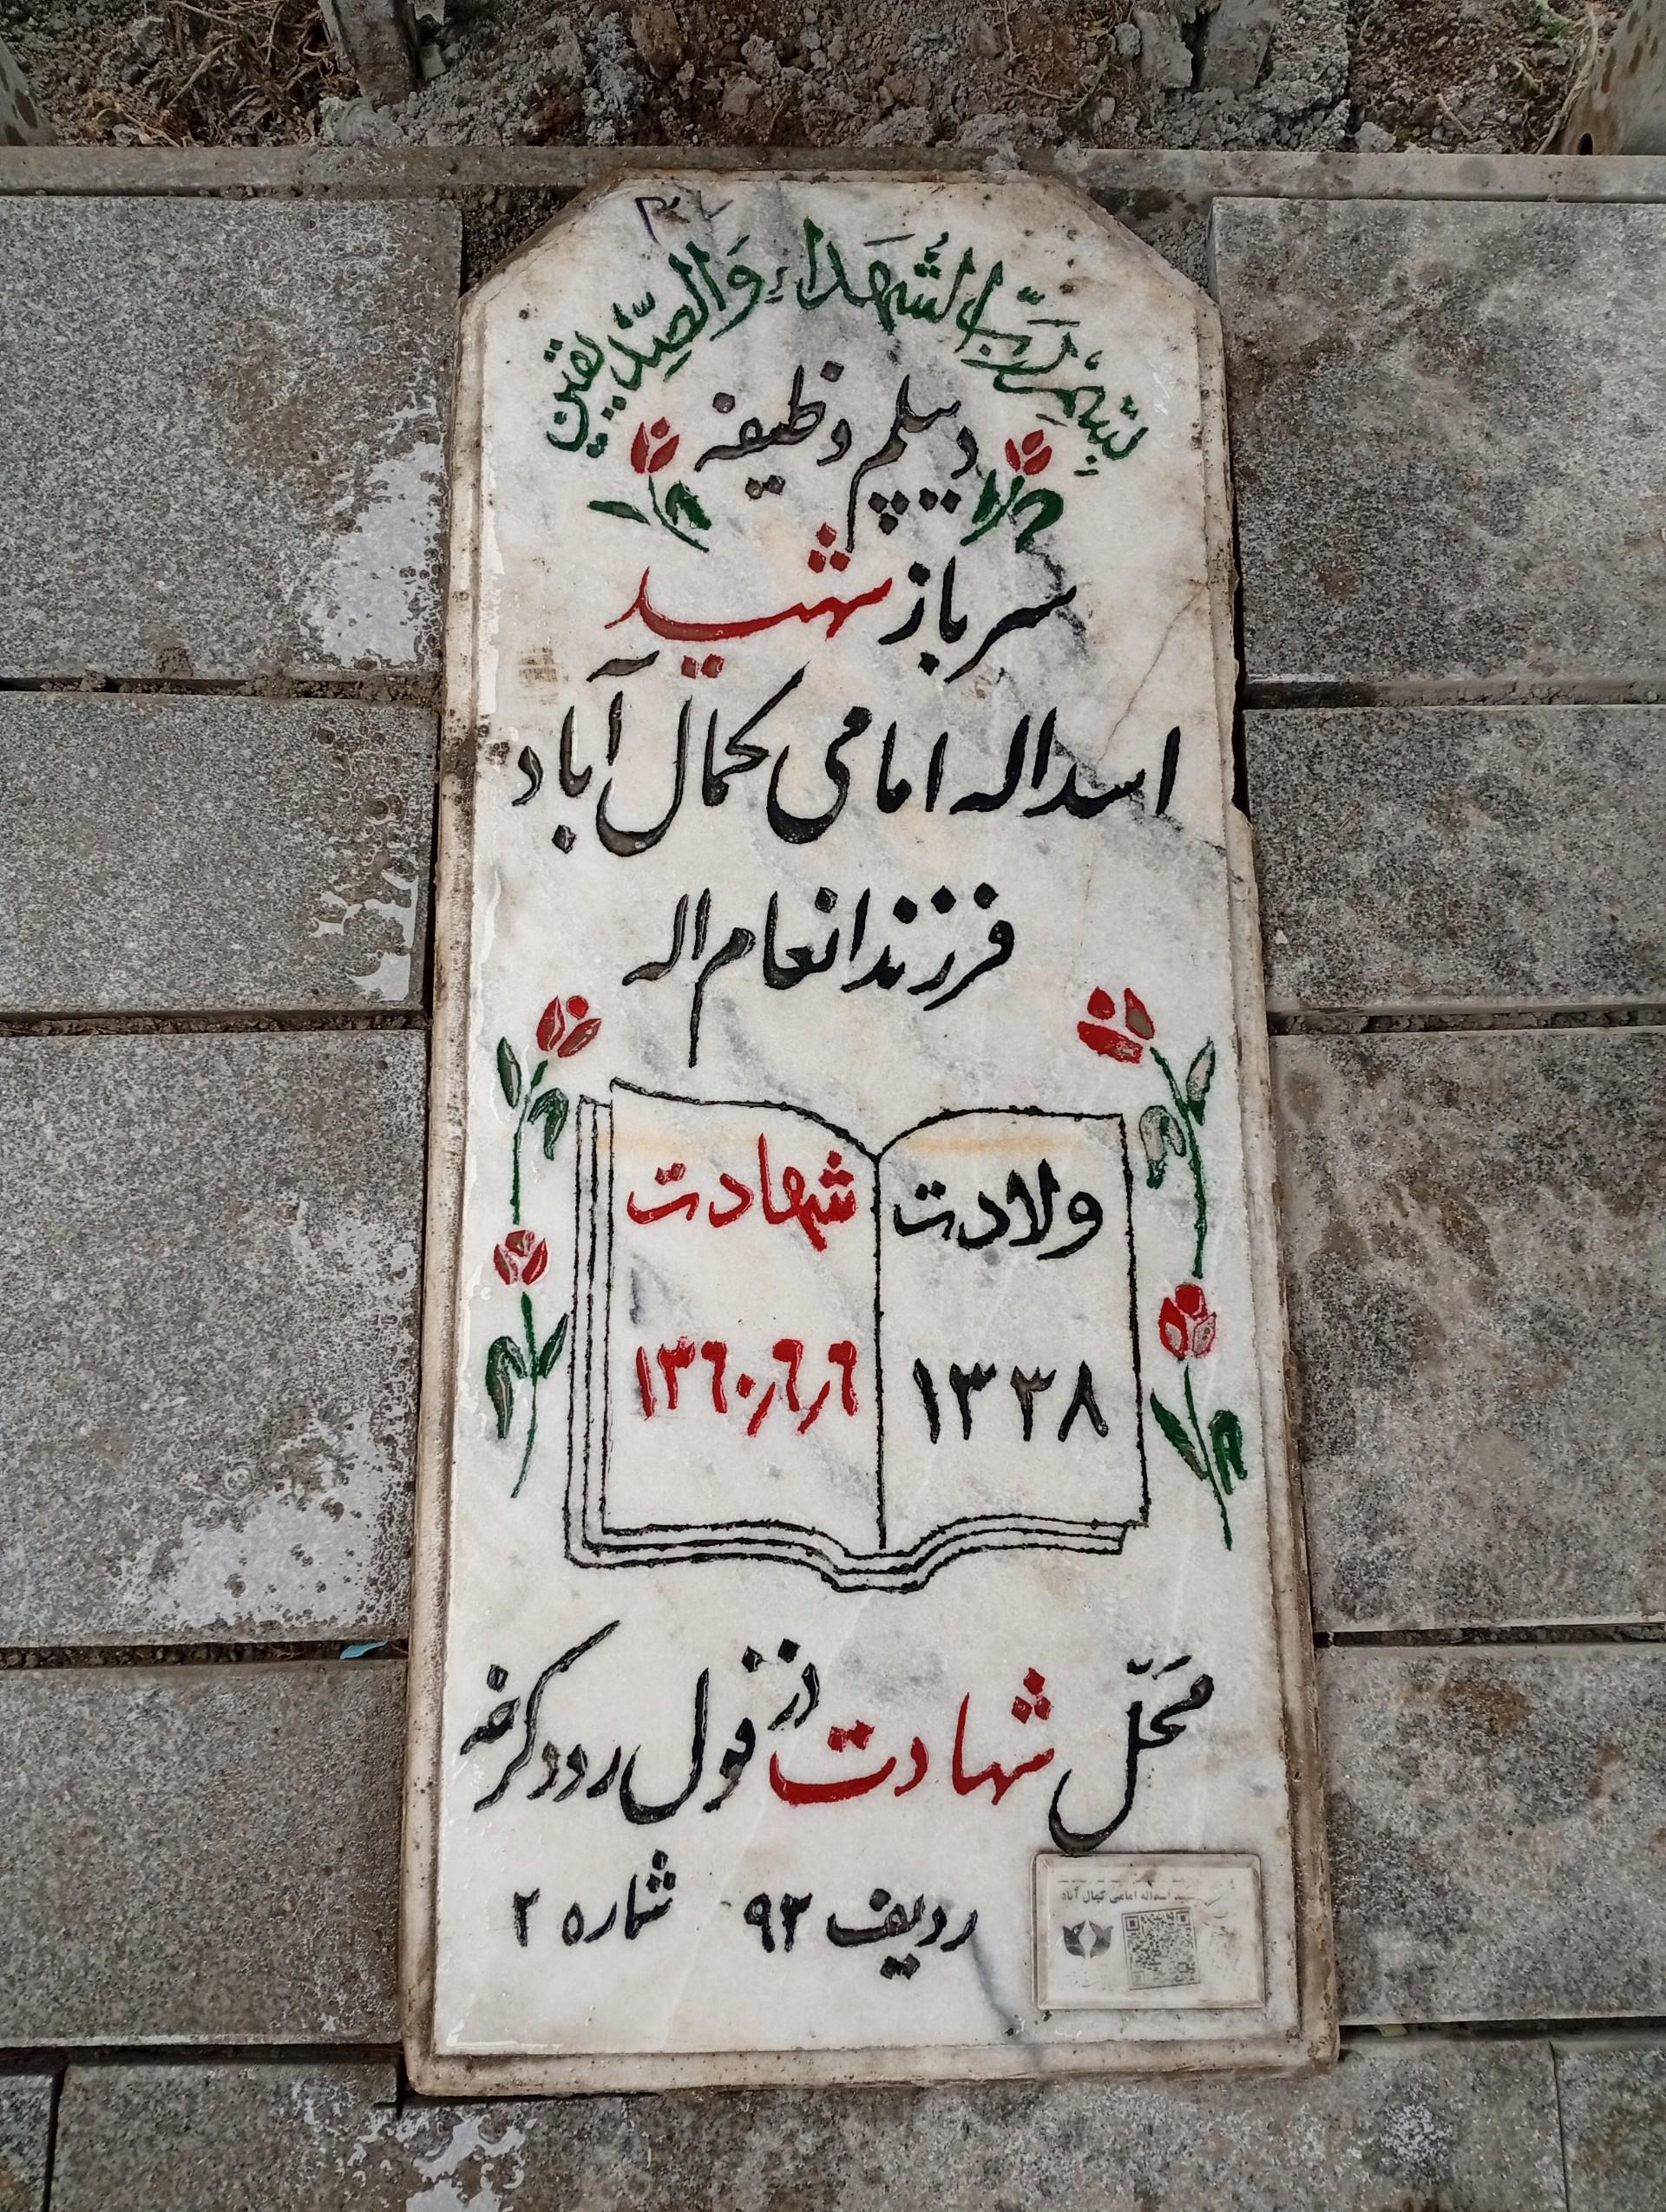 بِسْمِ رَبِّ الشُّهَداءِ وَالصِّدّیقین
دیپلم وظیفه
سرباز شهید
اسداله امامی کمال آباد
فرزند انعام اله
ولادت
۱۳۳۸
شهادت
۱۳۶۰٫۶٫۶
محَلّ شهادت دزفول رود کرخه
ردیف ۹۳ شماره ۲
شهید اسداله امامی کمال آباد